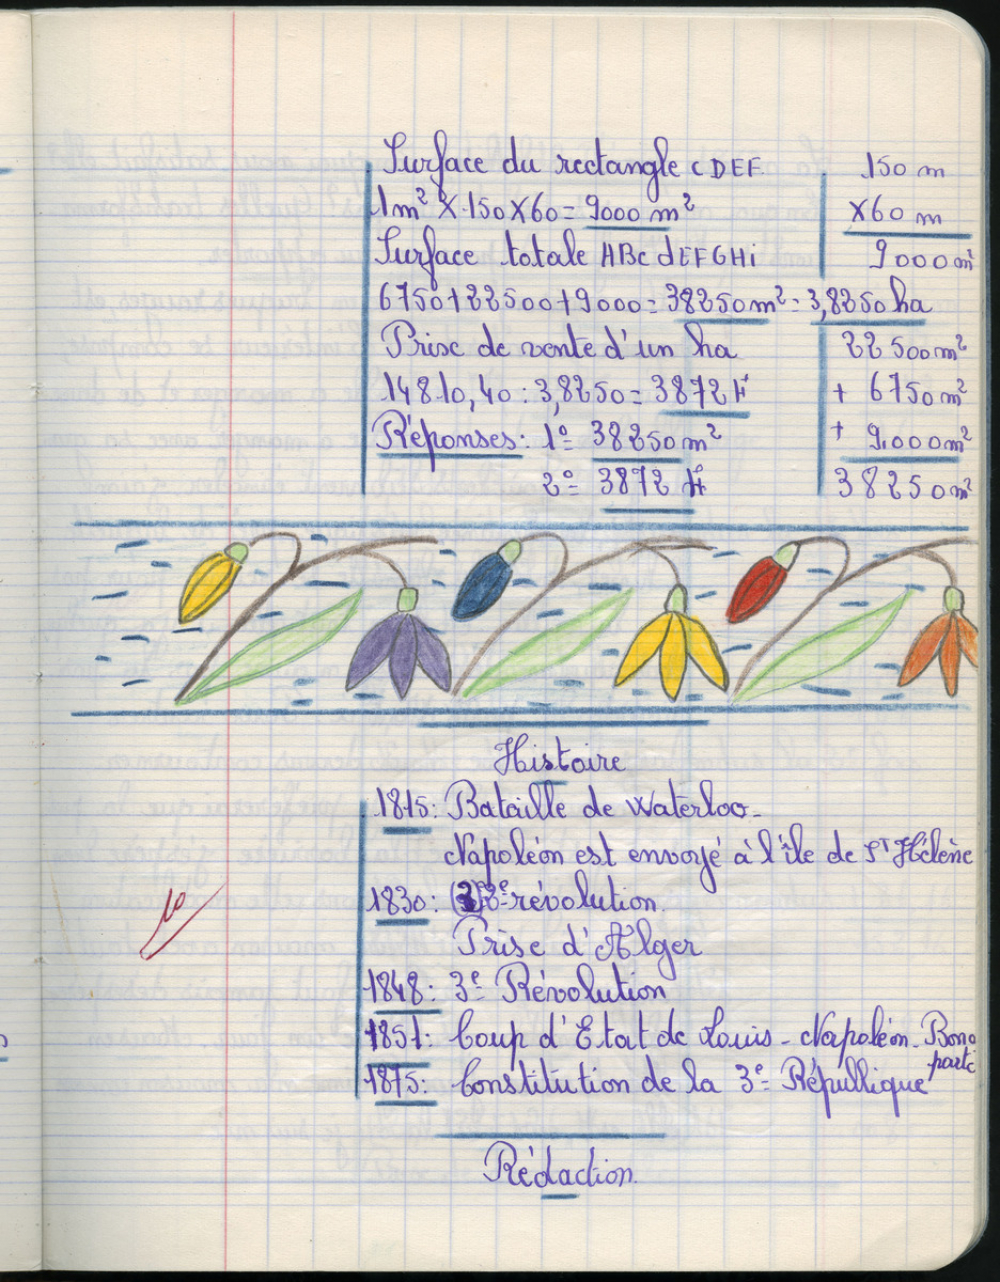 Surface du rectangle CDEF.
1m² X 150 X 60 = 9000 m²
Surface totale ABcdEFGHi
6750 + 22500 + 9000 = 38250 m² = 3,8250 ha
Prise de vente d'un ha
14810,40 : 3,8250 = 3872 F
Réponses : 1º 38250 m²
2º 3872 F
150 m
X60 m
9000 m²
22500 m²
+ 6750 m²
+ 9.000 m²
38250 m²
Histoire
1815: Bataille de Waterloo.
Napoléon est envoyé à l'île de St Hélène
1830: 2e révolution.
Prise d'Alger
1848: 3e Révolution
1851: Coup d'Etat de Louis-Napoléon. Bona
parte
1875: Constitution de la 3e Républlique
10
Rédaction.